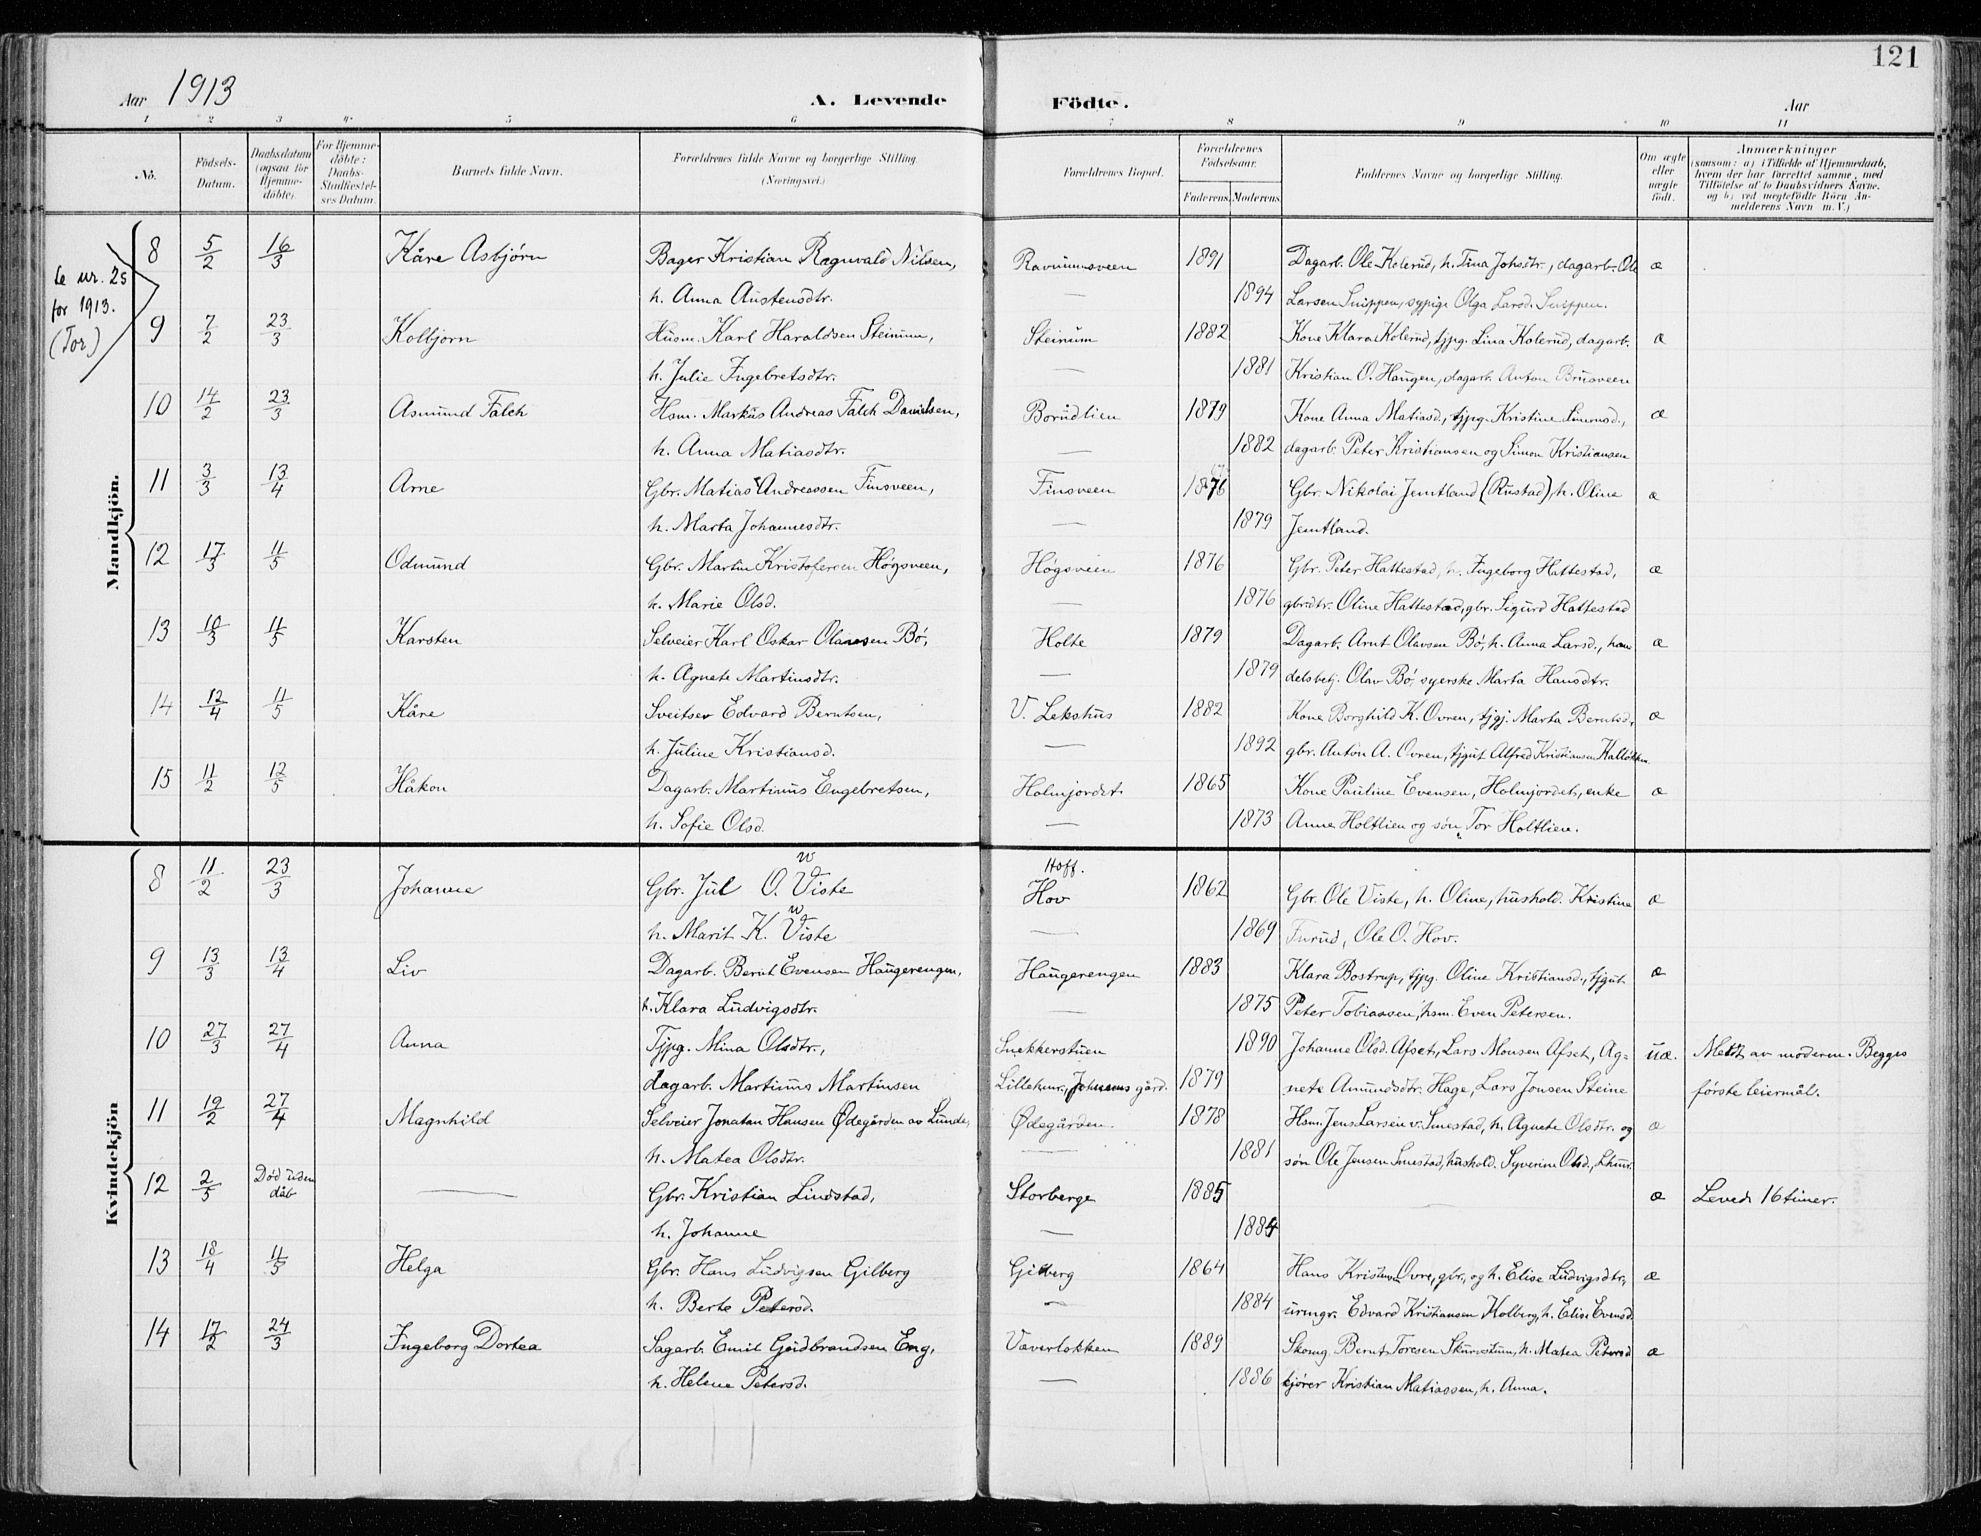 121
Aar 1913 A. Levende Födte. Aar
1 2 3 4 5 6 7 8 9 10 11
No.
Födsels-Datum.
Daabsdatum (ogsaa for Hjemme-döbte).
For Hjemme-döbte: Daabs-Stadfæstel-ses Datum.
Barnets fulde Navn.
Forældrenes fulde Navne og borgerlige Stilling. (Næringsvei.)
Forældrenes Bopæl.
Forældrenes Födselsaar.
Faderens Moderens
Faddernes Navne og borgerlige Stilling.
Om ægte eller uægte födt.
Anmærkninger
(saasom: a) i Tilfælde af Hjemmedaab, hvem der har forrettet samme, med Tilföielse af to Daabsvidners Navne. og b) ved uægtefödte Börn An-melderens Navn m. V.)
Mandkjön.
Se nr. 25
for 1913.
(Tor)
8 5/2 16/3 Kåre Asbjørn Bager Kristian Ragnvald Nilsen, Ravnumsveen 1891 Dagarb. Ole Kolerud, h. Tina Johsdtr., dagarb. Ole æ
h. Anna Austensdtr. — 1894 Larsen Snippen, sypige Olga Larsd. Snippen.
9 7/2 23/3 Kolbjørn Husm. Karl Haraldsen Steinum, Steinum 1882 Kone Klara Kolerud, tjpg. Lina Kolerud, dagarb. æ
h. Julie Ingebretsdtr. — 1881 Kristian O. Haugen, dagarb. Anton Brusveen
10 14/2 23/3 Asmund Falch Hsm. Markus Andreas Falch Danielsen, Borudlien 1879 Kone Anna Matiasd., tjpg. Kristine Simensd., æ
h. Anna Matiasdtr. — 1882 dagarb. Peter Kristiansen og Simon Kristiansen
11 3/3 13/4 Arne Gbr. Matias Andreassen Finsveen, Finsveen 1876 Gbr. Nikolai Jemtland (Rustad), h. Oline æ
h. Marta Johannesdtr. — 1879 Jemtland.
12 17/3 11/5 Odmund Gbr. Martin Kristofersen Høgsveen, Høgsveen 1876 Gbr. Peter Hattestad, h. Ingeborg Hattestad, æ
h. Marie Olsd. — 1876 gbrdtr. Oline Hattestad, gbr. Sigurd Hattestad
13 10/3 11/5 Karsten Selveier Karl Oskar Olausen Bø, Holte 1879 Dagarb. Arnt Olavsen Bø, h. Anna Larsd., han- æ
h. Agnete Martinsdtr. 1879 delsbetj. Olav Bø, syerske Marta Hansdtr.
14 12/4 11/5 Kåre Sveitser Edvard Berntsen, V. Lekshus 1882 Kone Borghild K. Ovren, tjgj. Marta Berntsd., æ
h. Juline Kristiansd. — 1892 gbr. Anton A. Ovren, tjgut Alfred Kristiansen
15 11/2 12/5 Håkon Dagarb. Martinus Engebretsen, Holmjordet 1865 Kone Pauline Evensen, Holmjordet, enke æ
h. Sofie Olsd. — 1873 Anne Holtlien og søn Tor Holtlien.
Kvindekjön
w Hoff.
8 11/2 23/3 Johanne Gbr. Jul O. Viste Hov 1862 Gbr. Ole Viste, h. Oline, hushold. Kristine æ
w
h. Marit K. Viste — 1869 Furud, Ole O. Hov.
9 13/3 13/4 Liv Dagarb. Bernt Evensen Haugerengen, Haugerengen 1883 Klara Bostrup, tjpg. Oline Kristiansd., tjgut æ
h. Klara Ludvigsdtr. — 1875 Peter Tobiassen, hsm. Even Petersen.
10 27/3 27/4 Anna Tjpg. Mina Olsdtr., Snekkerstuen 1890 Johanne Olsd. Afset, Lars Monsen Afset, Ag- uæ. Meldt av moderen. Begges
dagarb. Martinus Martinsen Lillehmr., gård. 1879 nete Amundsdtr. Hage, Lars Jonsen Steine første leiermål.
11 19/2 27/4 Magnhild Selveier Jonatan Hansen Ødegården av Lunde, Ødegården 1878 Hsm. Jens Larsen v. Smestad, h. Agnete Olsdtr. og æ
h. Matea Olsdtr. — 1881 søn Ole Jensen Smestad, hushold. Syverine Olsd., Lhmr.
12 2/5 Død uden dåb — Gbr. Kristian Lindstad, Storberge 1885 æ Levede 16 timer.
h. Johanne — 1884
13 18/4 11/5 Helga Gbr. Hans Ludvigsen Gilberg Gilberg 1864 Hans Kristensen Ovre, gbr., og h. Elise Ludvigsdtr., æ
h. Berte Petersd. — 1884 urmgr. Edvard Kristiansen Kolberg, h. Elise Evensd.
14 17/2 24/3 Ingeborg Dortea Sagarb. Emil Gudbrandsen Eng, Væverløkken 1889 Skomg. Bernt Toresen Skurvstum, h. Matea Petersd æ
h. Helene Petersd. — 1886 kjører Kristian Matiassen, h. Anna.